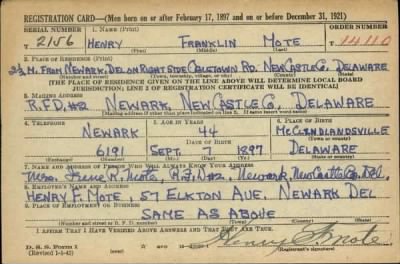 REGISTRATION CARD—(Men born on or after February 17, 1897 and on or before December 31, 1921)
SERIAL NUMBER 1. NAME (Print) ORDER NUMBER
T 2156 HENRY FRANKLIN MOTE 14110
(First) (Middle) (Last)
2. PLACE OF RESIDENCE (Print)
M. FROM NEWARK, DEL ON RIGHT SIDE RD. NEWCASTLE CO. DELAWARE
(Number and street) (Town, township, village, or city) (County) (State)
[THE PLACE OF RESIDENCE GIVEN ON THE LINE ABOVE WILL DETERMINE LOCAL BOARD
JURISDICTION; LINE 2 OF REGISTRATION CERTIFICATE WILL BE IDENTICAL]
3. MAILING ADDRESS
R.F.D. #2 NEWARK, NEWCASTLE CO. DELAWARE
[Mailing address if other than place indicated on line 2. If same insert word same]
4. TELEPHONE 5. AGE IN YEARS 6. PLACE OF BIRTH
NEWARK 44
DATE OF BIRTH (Town or county)
6191 SEPT. 1897 DELAWARE
(Exchange) (Number) (Mo.) (Day) (Yr.) (State or country)
7. NAME AND ADDRESS OF PERSON WHO WILL ALWAYS KNOW YOUR ADDRESS
Mrs. Irene R. Mote, R.F.D #2, Newark, New Castle Co, Del.
8. EMPLOYER'S NAME AND ADDRESS
HENRY F. MOTE, 57 ELKTON AVE. NEWARK DEL
9. PLACE OF EMPLOYMENT OR BUSINESS
SAME AS ABOVE
(Number and street or R. F. D. number) (Town) (County) (State)
I AFFIRM THAT I HAVE VERIFIED ABOVE ANSWERS AND THAT THEY ARE TRUE.
D. S. S. Form 1
(Revised 1-1-42) (over) Henry F. Mote
(Registrant's signature)